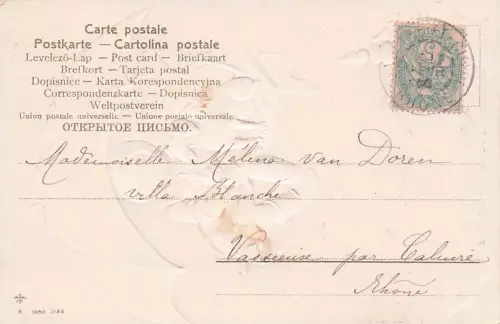 Carte postale
Postkarte — Cartolina postale
Levelező-Lap — Post card — Briefkaart
Brefkort — Tarjeta postal
Dopisnice — Karta Korespondencyjna
Correspondenzkarte — Dopisnica
Weltpostverein
Union postale universelle — Unione postale universale
ОТКРЫТОЕ ПИСЬМО.
Mademoiselle Mélina van Doren
villa Blanche
Vassieuse par Caluire
Rhône